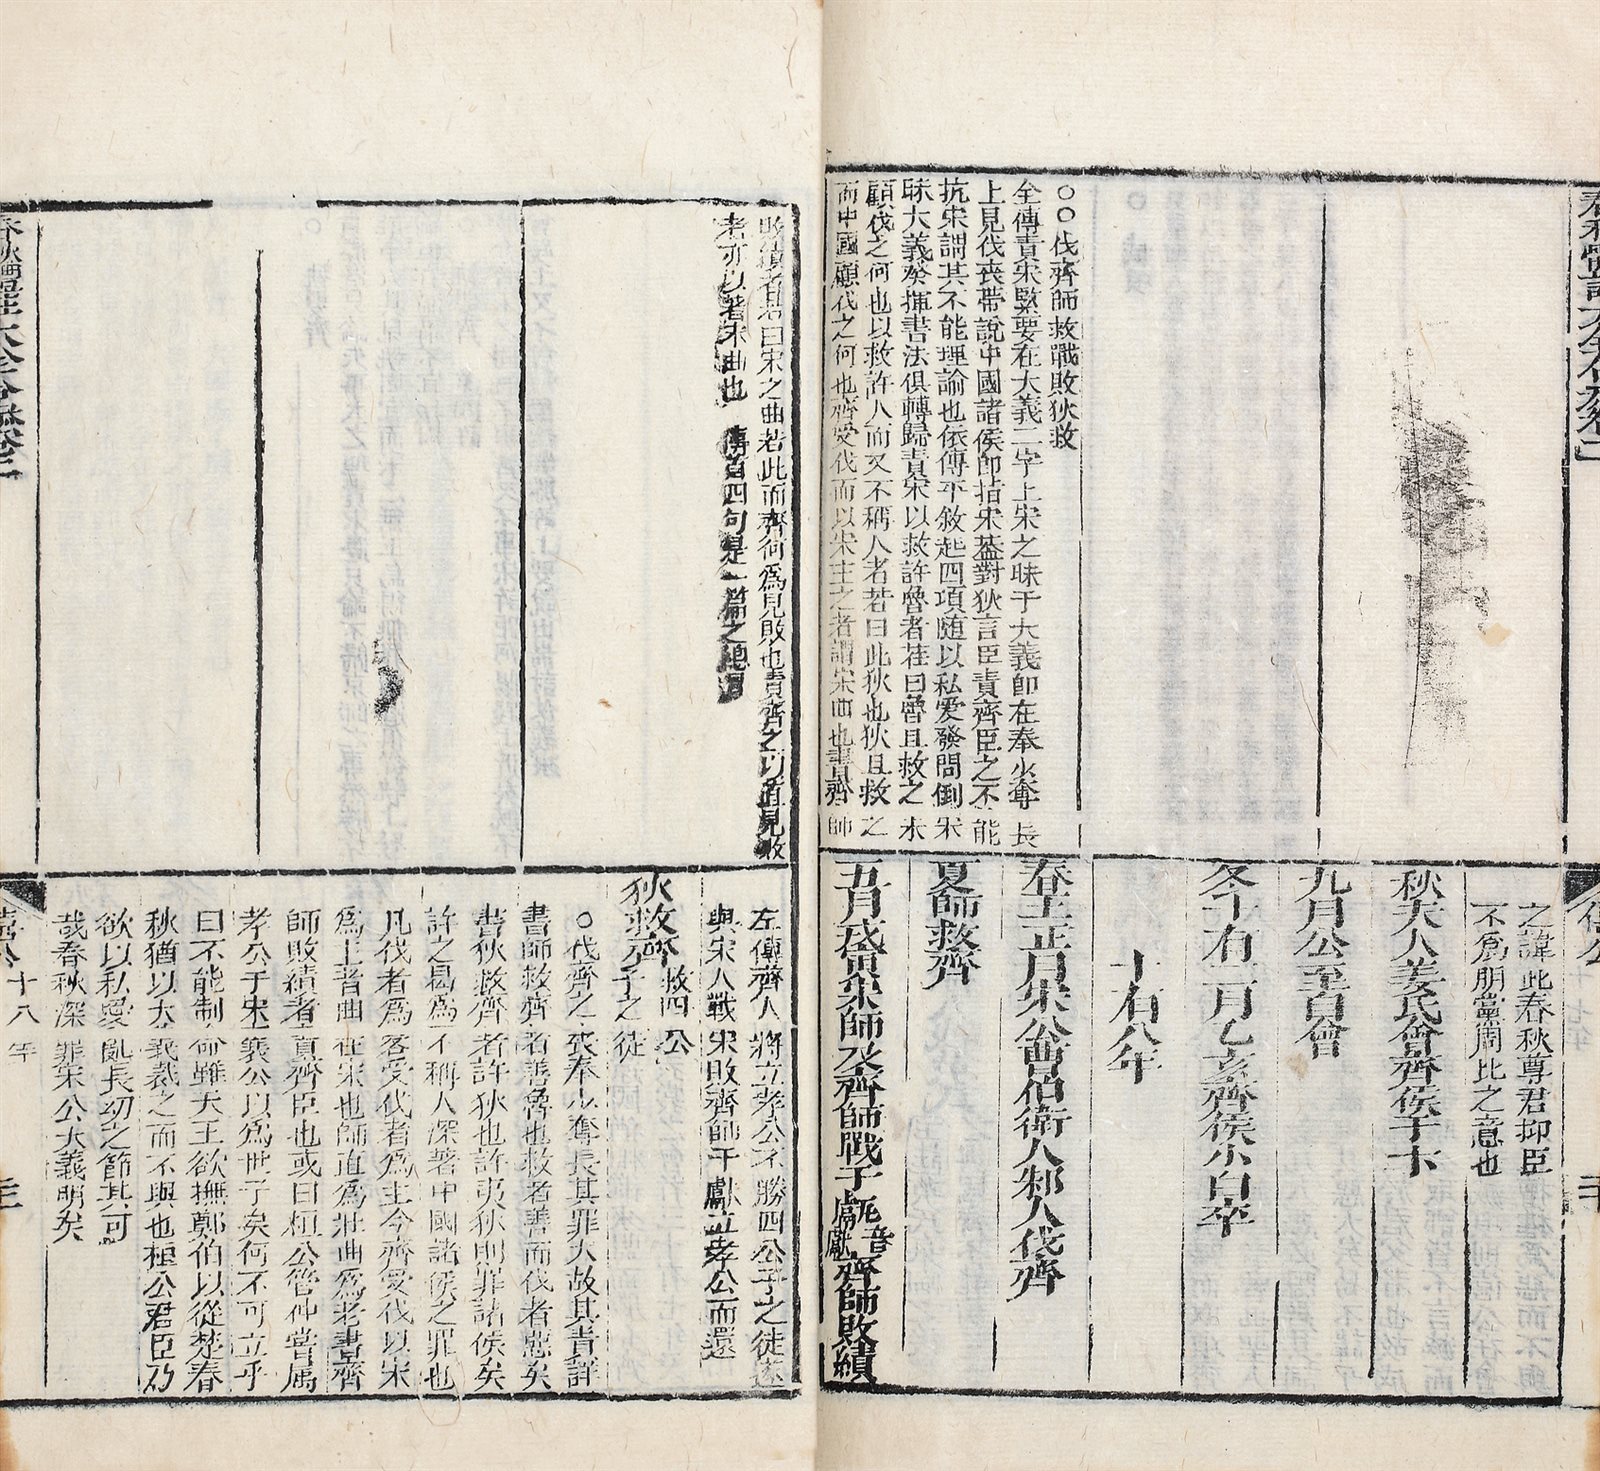 〇〇伐齊師救戰敗狄救
全傳責宋緊要在大義二字上宋之昧于大義卽在奉少奪長
上見伐喪帶說中國諸侯卽指宋葢對狄言臣責齊臣之不能
抗宋謂其不能理論也依傳平敘起四項随以私愛發問倒宋
昧大義發揮書法俱轉歸責宋以救許魯者若曰魯且救之宋
顧伐之何也以救許人而又不稱人者若曰此狄也狄且救之
而中國顧伐之何也齊受伐而以宋主之者謂宋曲也書齊師
之諱此春秋尊君抑臣
不爲朋黨周比之意也
秋夫人姜氏會齊侯于卞
九月公至自會
冬十有二月乙亥齊侯小白卒
十有八年
春王正月宋公曹伯衛人邾人伐齊
夏師救齊
五月戊寅宋師及齊師戰于甗音獻齊師敗績
敗績者若曰宋之曲若此而齊何爲見敗也責齊之以直見敗
者亦以著宋曲也 傳首四句是一篇之總
左傳齊人將立孝公不勝四公子之徒遂
與宋人戰宋敗齊師于甗立孝公而還
狄救齊救四公子之徒
〇伐齊之喪奉少奪長其罪大故其責詳
書師救齊者善魯也救者善而伐者惡矣
書狄救齊者許狄也許夷狄則罪諸侯矣
許之曷爲不稱人深著中國諸侯之罪也
凡伐者爲客受伐者爲主今齊受伐以宋
爲主者曲在宋也師直爲壯曲爲老書齊
師敗績者責齊臣也或曰桓公管仲嘗属
孝公于宋襄公以爲世子矣何不可立乎
曰不能制命雖天王欲撫鄭伯以從楚春
秋猶以大義裁之而不與也桓公君臣乃
欲以私愛亂長幼之節其可
哉春秋深罪宋公大義明矣
僖公十八年